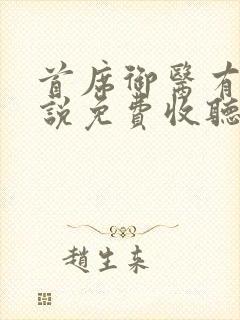 首席御醫有
説免費收聽
趙生來